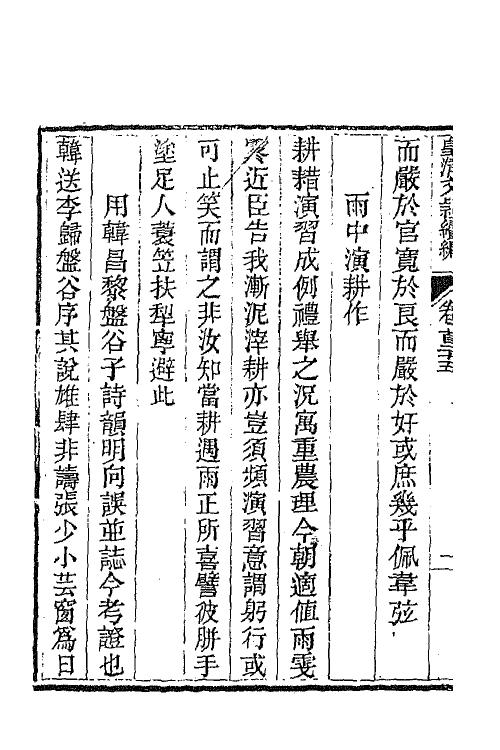 皇清文穎續編 卷 一
而嚴於官寬於良而嚴於奸或庶幾乎佩韋弦
雨中演耕作
耕耤演習成例禮舉之況寓重農理今朝適值雨雯
近臣告我漸泥滓耕亦豈須頻演習意謂躬行或
可止笑而謂之非汝知當耕遇雨正所喜譬彼胼手
塗足人蓑笠扶犁寧避此
用韓昌黎盤谷子詩韻明向誤並誌今考證也
韓送李歸盤谷序其說雄肆非譸張少小芸窗爲日